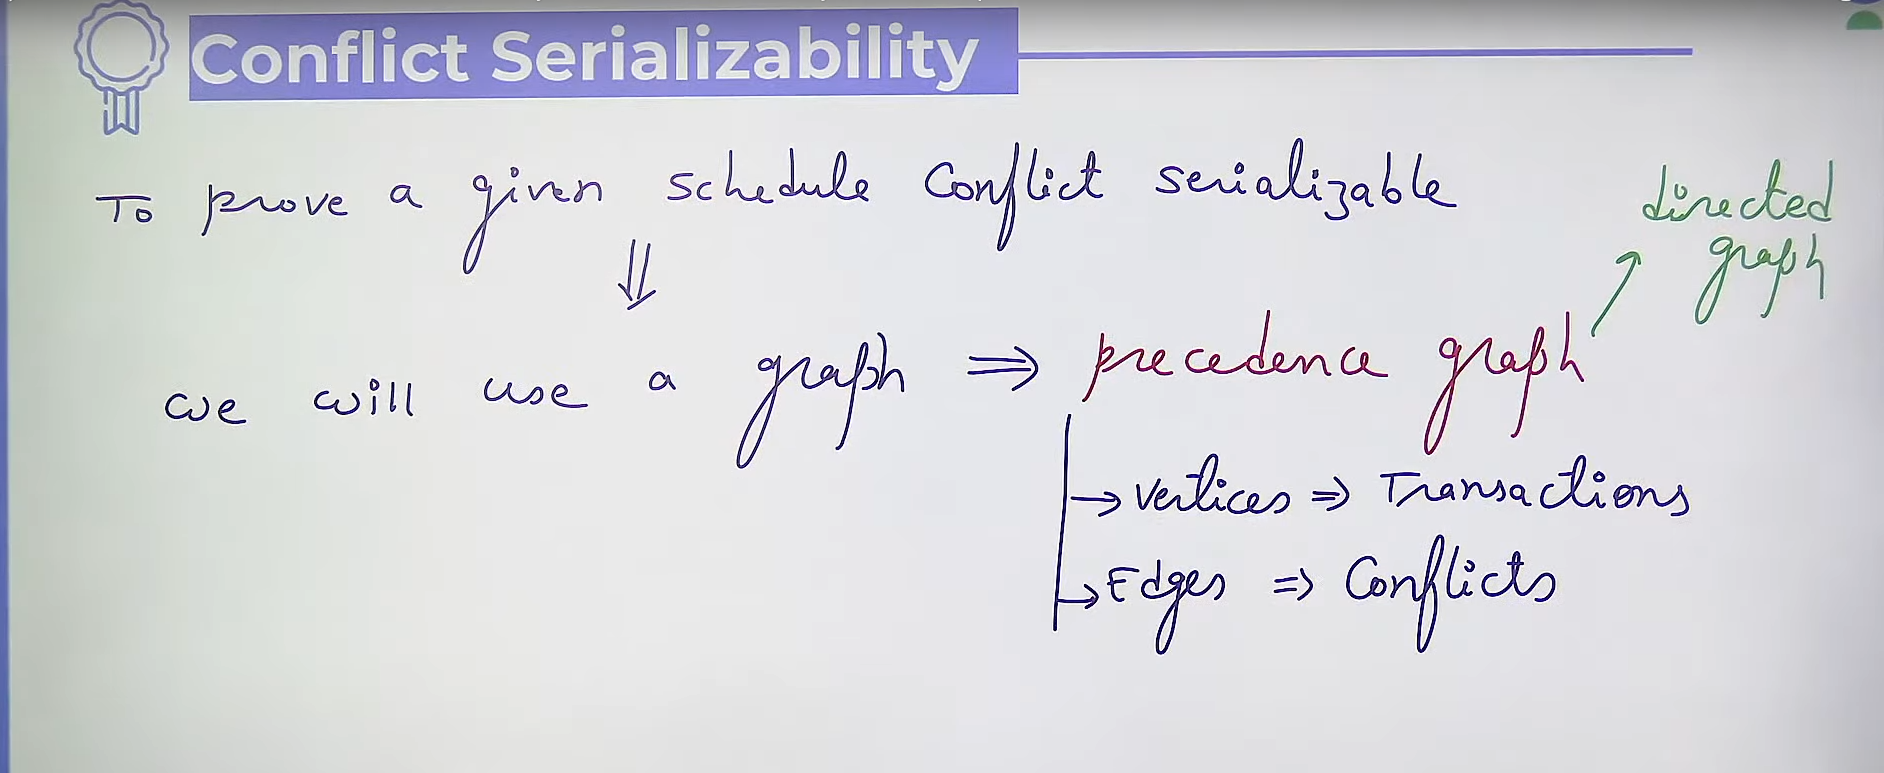 Conflict Serializability
To prove a given schedule Conflict serializable
directed
graph
⇓
we will use a graph ⇒ precedence graph
→ Vertices ⇒ Transactions
→ Edges ⇒ Conflicts